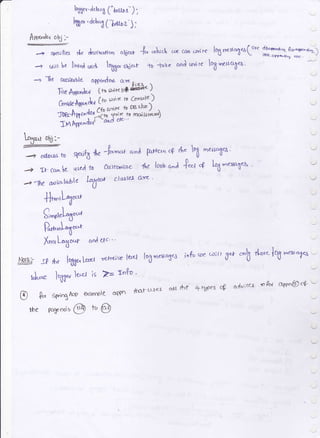 logger.debug ("hello1");
logger.debug ("hello2");
Appender obj :-
→ specifies the destination object for which we can write log messages
→ will be linked with logger object to take and write log messages.
→ The available appenders are
File Appender (to write to files)
Console Appender (to write to console)
JDBC Appender (to write to DB s/w)
IMAppender and etc...
Layout obj :-
→ allows to specify the format and pattern of the log messages.
→ It can be used to customise the look and feel of log messages.
→ The available layout classes are.
HtmlLayout
SimpleLayout
PatternLayout
XmlLayout and etc...
Note: If the logger level retrieve level log messages info we will get only those log messages
whose logger level is >= Info.
for spring Aop example appn that uses all the 4 types of advices refer appn
the page no's to